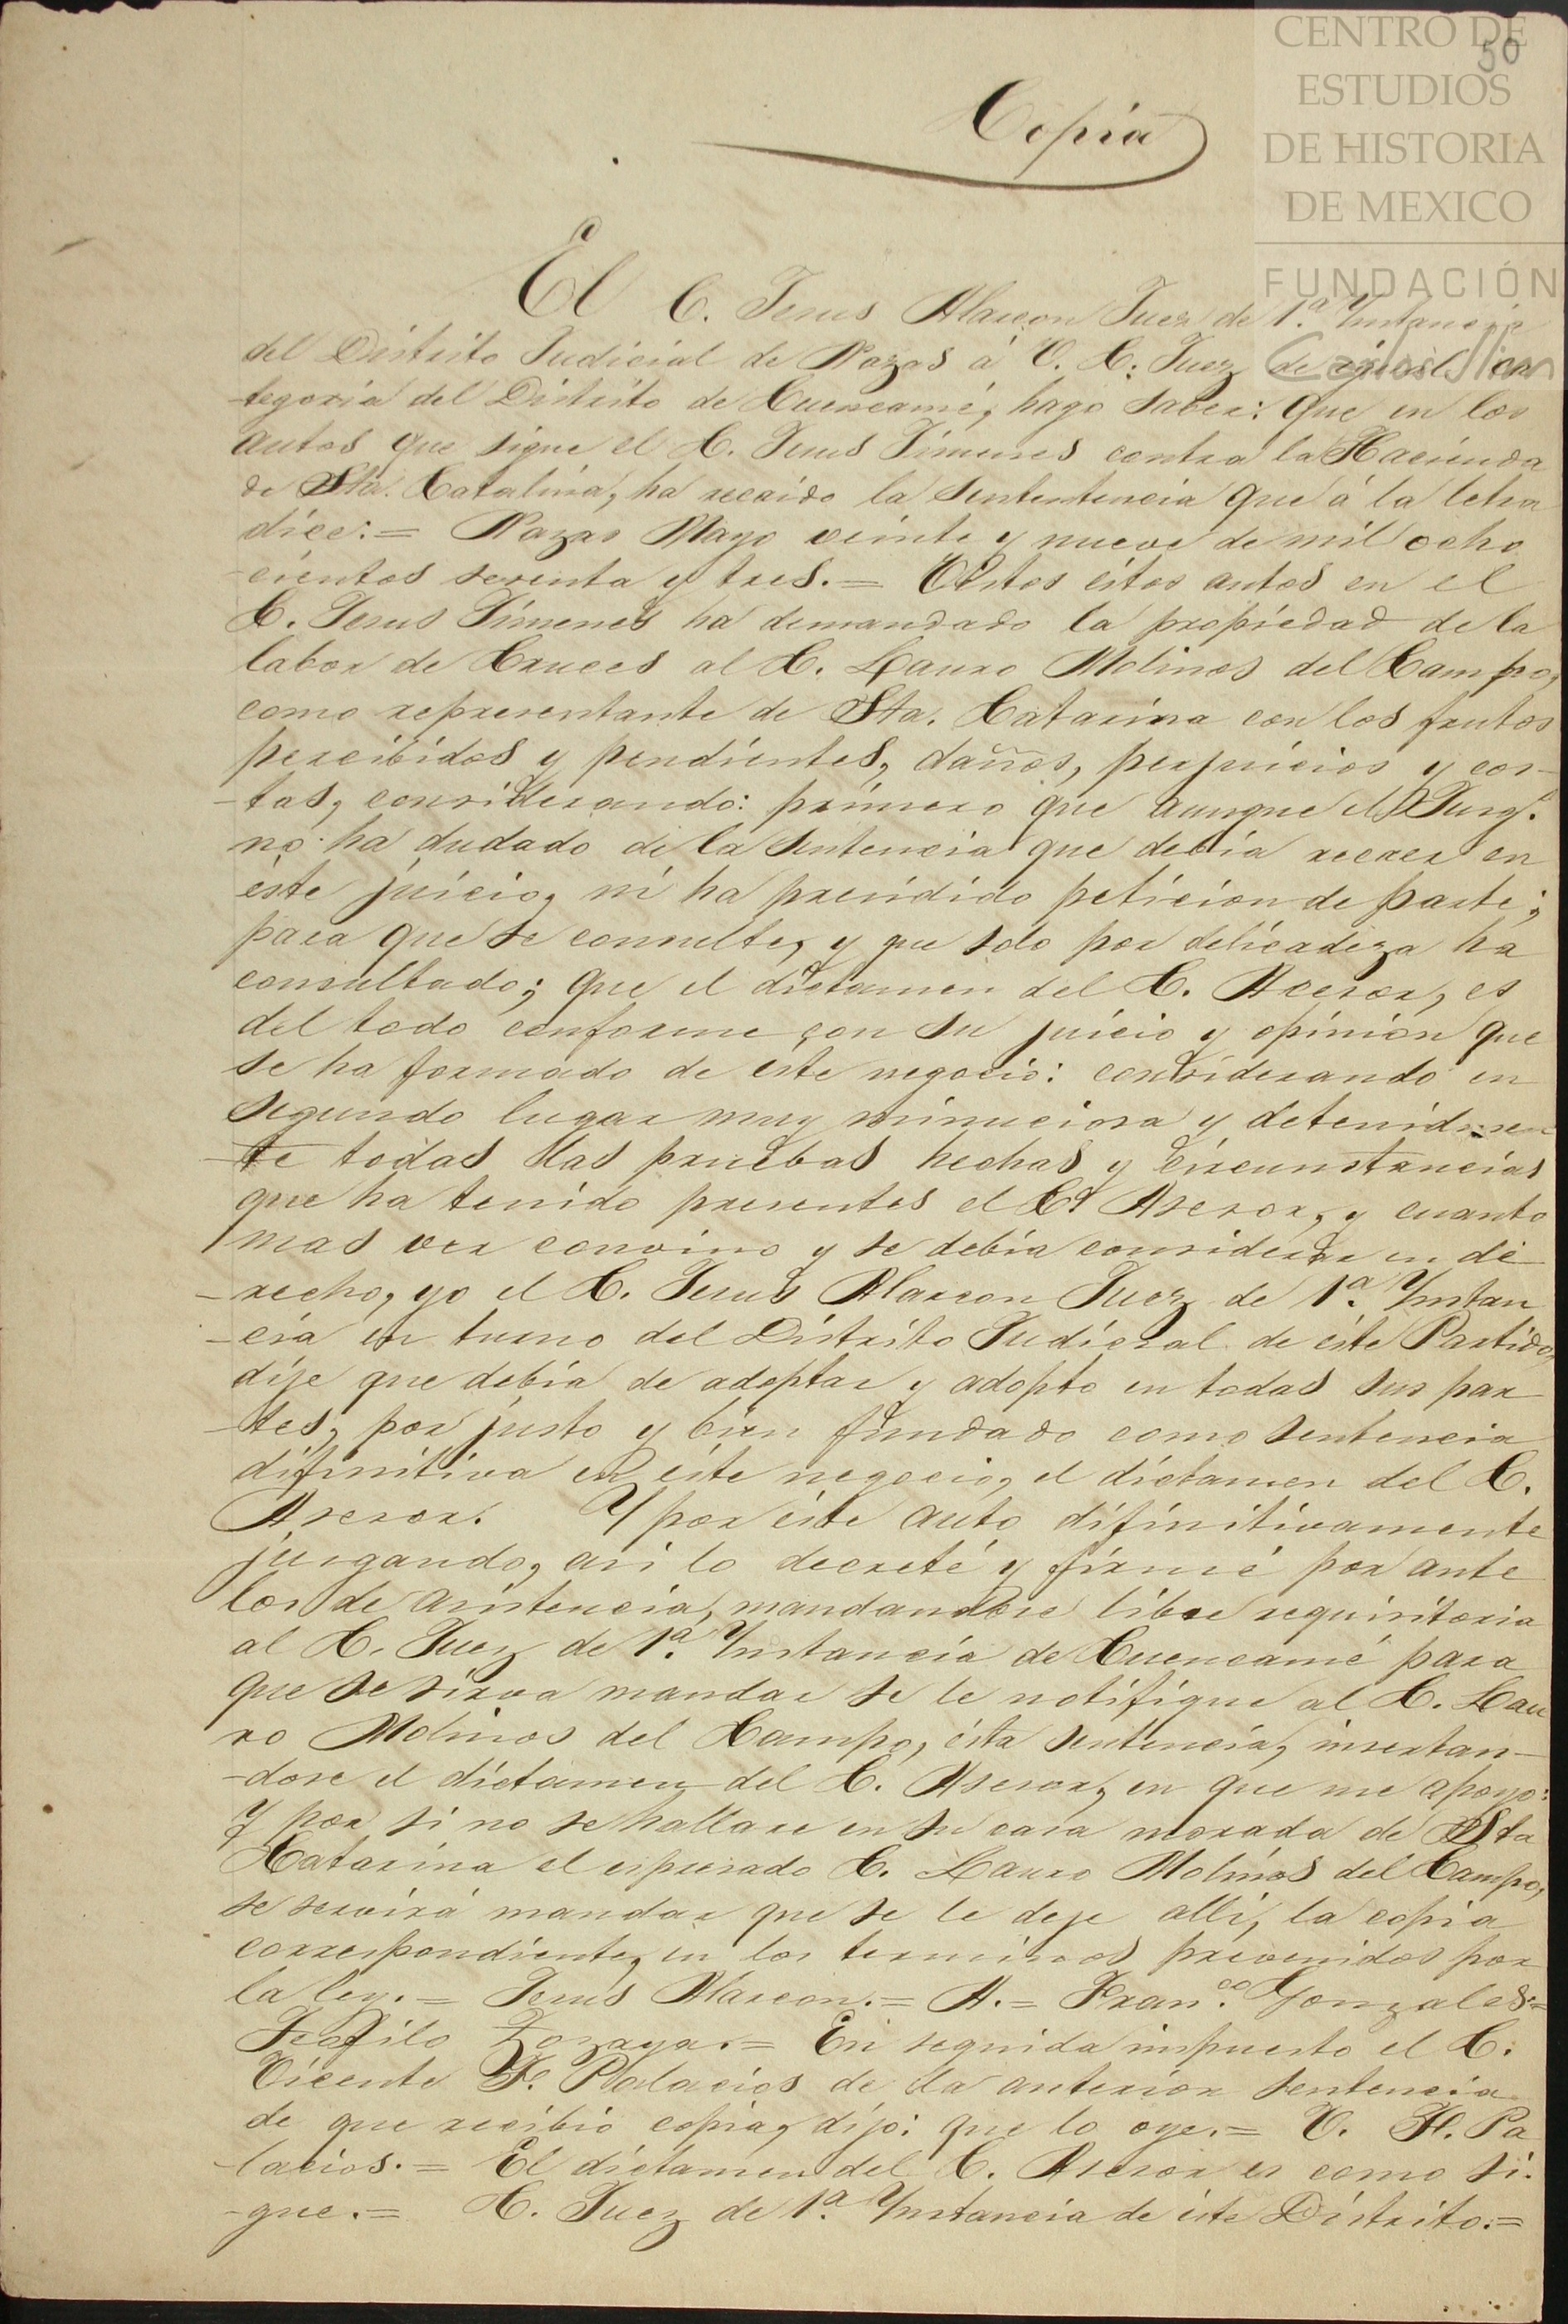 CENTRO DE
ESTUDIOS
DE HISTORIA
DE MEXICO
FUNDACIÓN
Carlos Slim
50
Copia
El C. Jesus Alarcon Juez de 1.ª Ynstancia
del Distrito Judicial de Nazas á V. C. Juez de igual ca
-tegoria del Distrito de Cuencamé, hago saber: Que en los
autos que sigue el C. Jesus Jimenes contra la Hacienda
de Sta. Catalina, ha recaido la sententencia que á la letra
dice:= Nazas Mayo veinte y nueve de mil ocho
-cientos setenta y tres.= Vistos éstos autos en el
C. Jesus Jimenes ha demandado la propiedad de la
labor de Cruces al C. Lauro Molinos del Campo,
como representante de Sta. Catarina con los frutos
percibidos y pendientes, daños, perjuicios y cos-
-tas, considerando: primero que aunque el Juzg.º
no ha dudado de la sentencia que debia recaer en
éste juicio, ni ha precidido peticion de parte;
para que se consulte, y que solo por delicadeza ha
consultado; que el dictamen del C. Acesor, es
del todo conforme con su juicio y opinion que
se ha formado de este negocio: considerando en
segundo lugar muy minuciosa y detenidamen
-te todas las pruebas hechas y circunstancias
que ha tenido presentes el C. Asesor, y cuanto
mas ver convino y se debia considerar en de
-recho, yo el C. Jesus Alarcon Juez de 1.ª Ynstan
-cia en turno del Distrito Judicial de éste Partido,
dije que debia de adoptar y adopto en todas sus par
-tes, por justo y bien fundado como sentencia
difinitiva en éste negocio, el dictamen del C.
Asesor. Y por éste auto difinitivamente
juzgando, asi lo decreté y firmé por ante
los de asistencia, mandandose libre requisitoria
al C. Juez de 1.ª Ynstancia de Cuencamé para
que se sirva mandar se le notifique al C. Lau
ro Molinos del Campo, ésta sentencia, insertan-
-dose el dictamen del C. Asesor, en que me apoyo:
Y por si no se hallare en su casa morada de Sta
Catarina el espresado C. Lauro Molinos del Campo,
se servirá mandar que se le deje alli, la copia
correspondiente, en los terminos prevenidos por
la ley.= Jesus Alarcon.= A.= Fran.co Gonzales:=
Teofilo Zozaya.= En seguida impuesto el C.
Vicente F. Palacios de la anterior sentencia
de que recibió copia, dijo: que lo oye.= V. F. Pa
-lacios.= El dictamen del C. Asesor es como si-
-gue.= C. Juez de 1.ª Ynstancia de éste Distrito.=